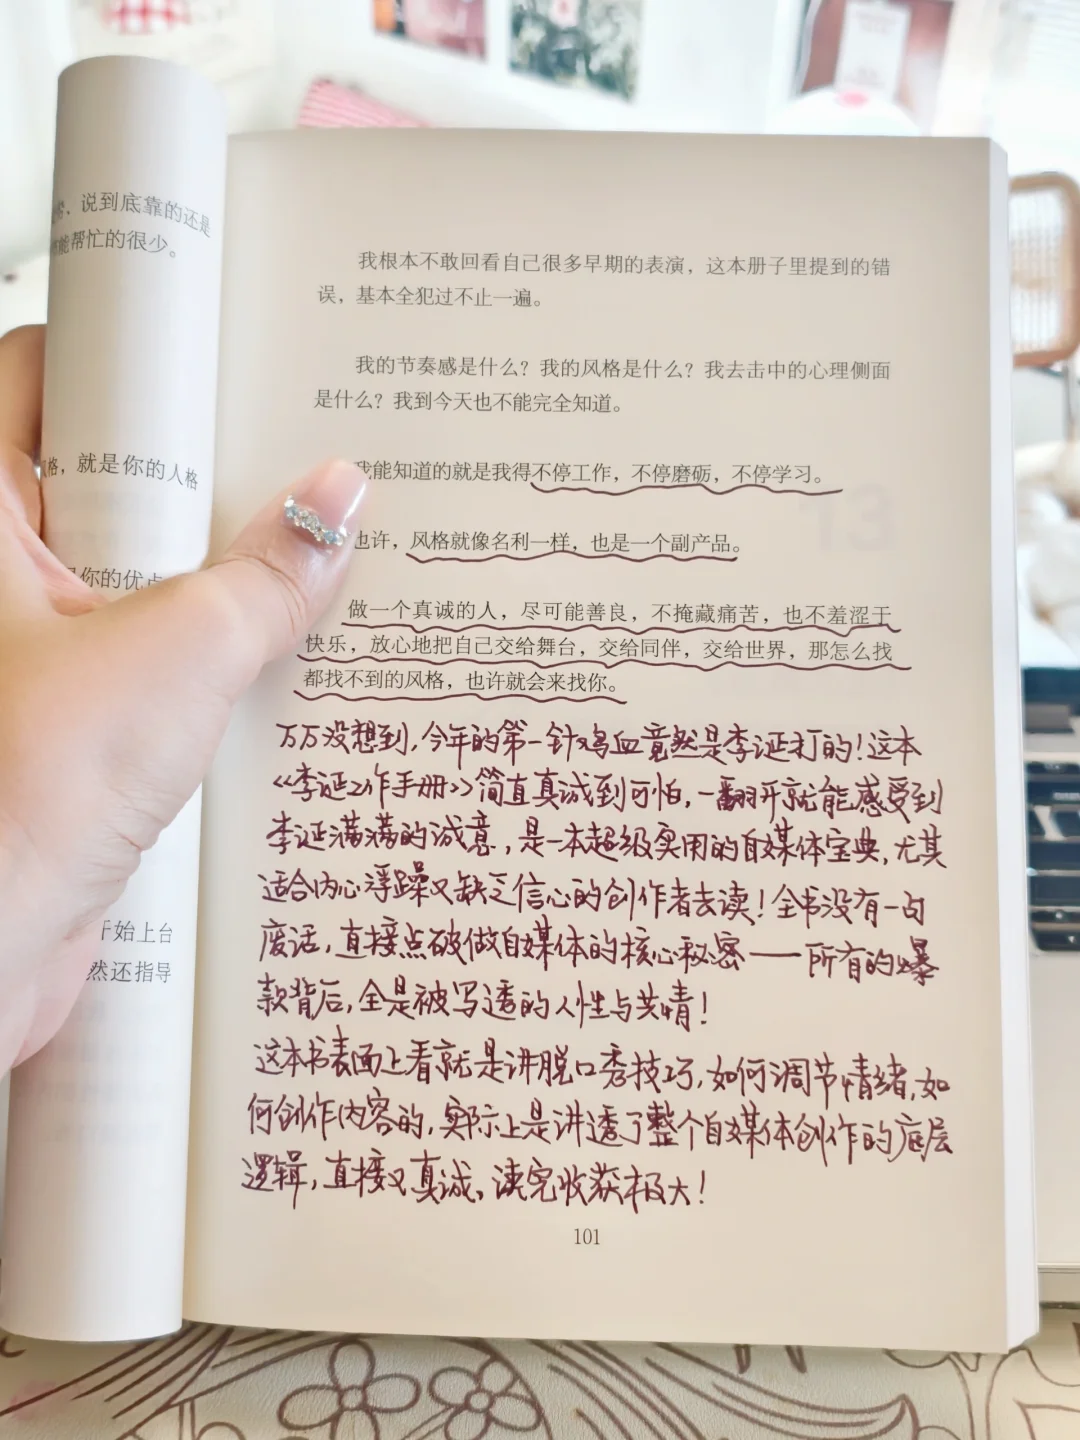 说到底靠的还是
能帮忙的很少。
格，就是你的人格
你的优点
开始上台
然还指导
我根本不敢回看自己很多早期的表演，这本册子里提到的错
误，基本全犯过不止一遍。
我的节奏感是什么？我的风格是什么？我去击中的心理侧面
是什么？我到今天也不能完全知道。
我能知道的就是我得不停工作，不停磨砺，不停学习。
也许，风格就像名利一样，也是一个副产品。
做一个真诚的人，尽可能善良，不掩藏痛苦，也不羞涩于
快乐，放心地把自己交给舞台，交给同伴，交给世界，那怎么找
都找不到的风格，也许就会来找你。
万万没想到，今年的第一针鸡血竟然是李诞打的！这本
《李诞工作手册》简直真诚到可怕，一翻开就能感受到
李诞满满的诚意，是一本超级实用的自媒体宝典，尤其
适合内心浮躁又缺乏信心的创作者去读！全书没有一句
废话，直接点破做自媒体的核心秘密——所有的爆
款背后，全是被写透的人性与共情！
这本书表面上看就是讲脱口秀技巧，如何调节情绪，如
何创作内容的，实际上是讲透了整个自媒体创作的底层
逻辑，直接又真诚，读完收获极大！
101
13